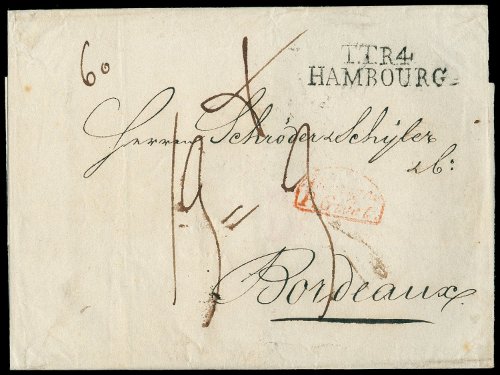 60
T.T.R.4
HAMBOURG
Herren Schröder & Schÿler
& C:
Bordeaux.